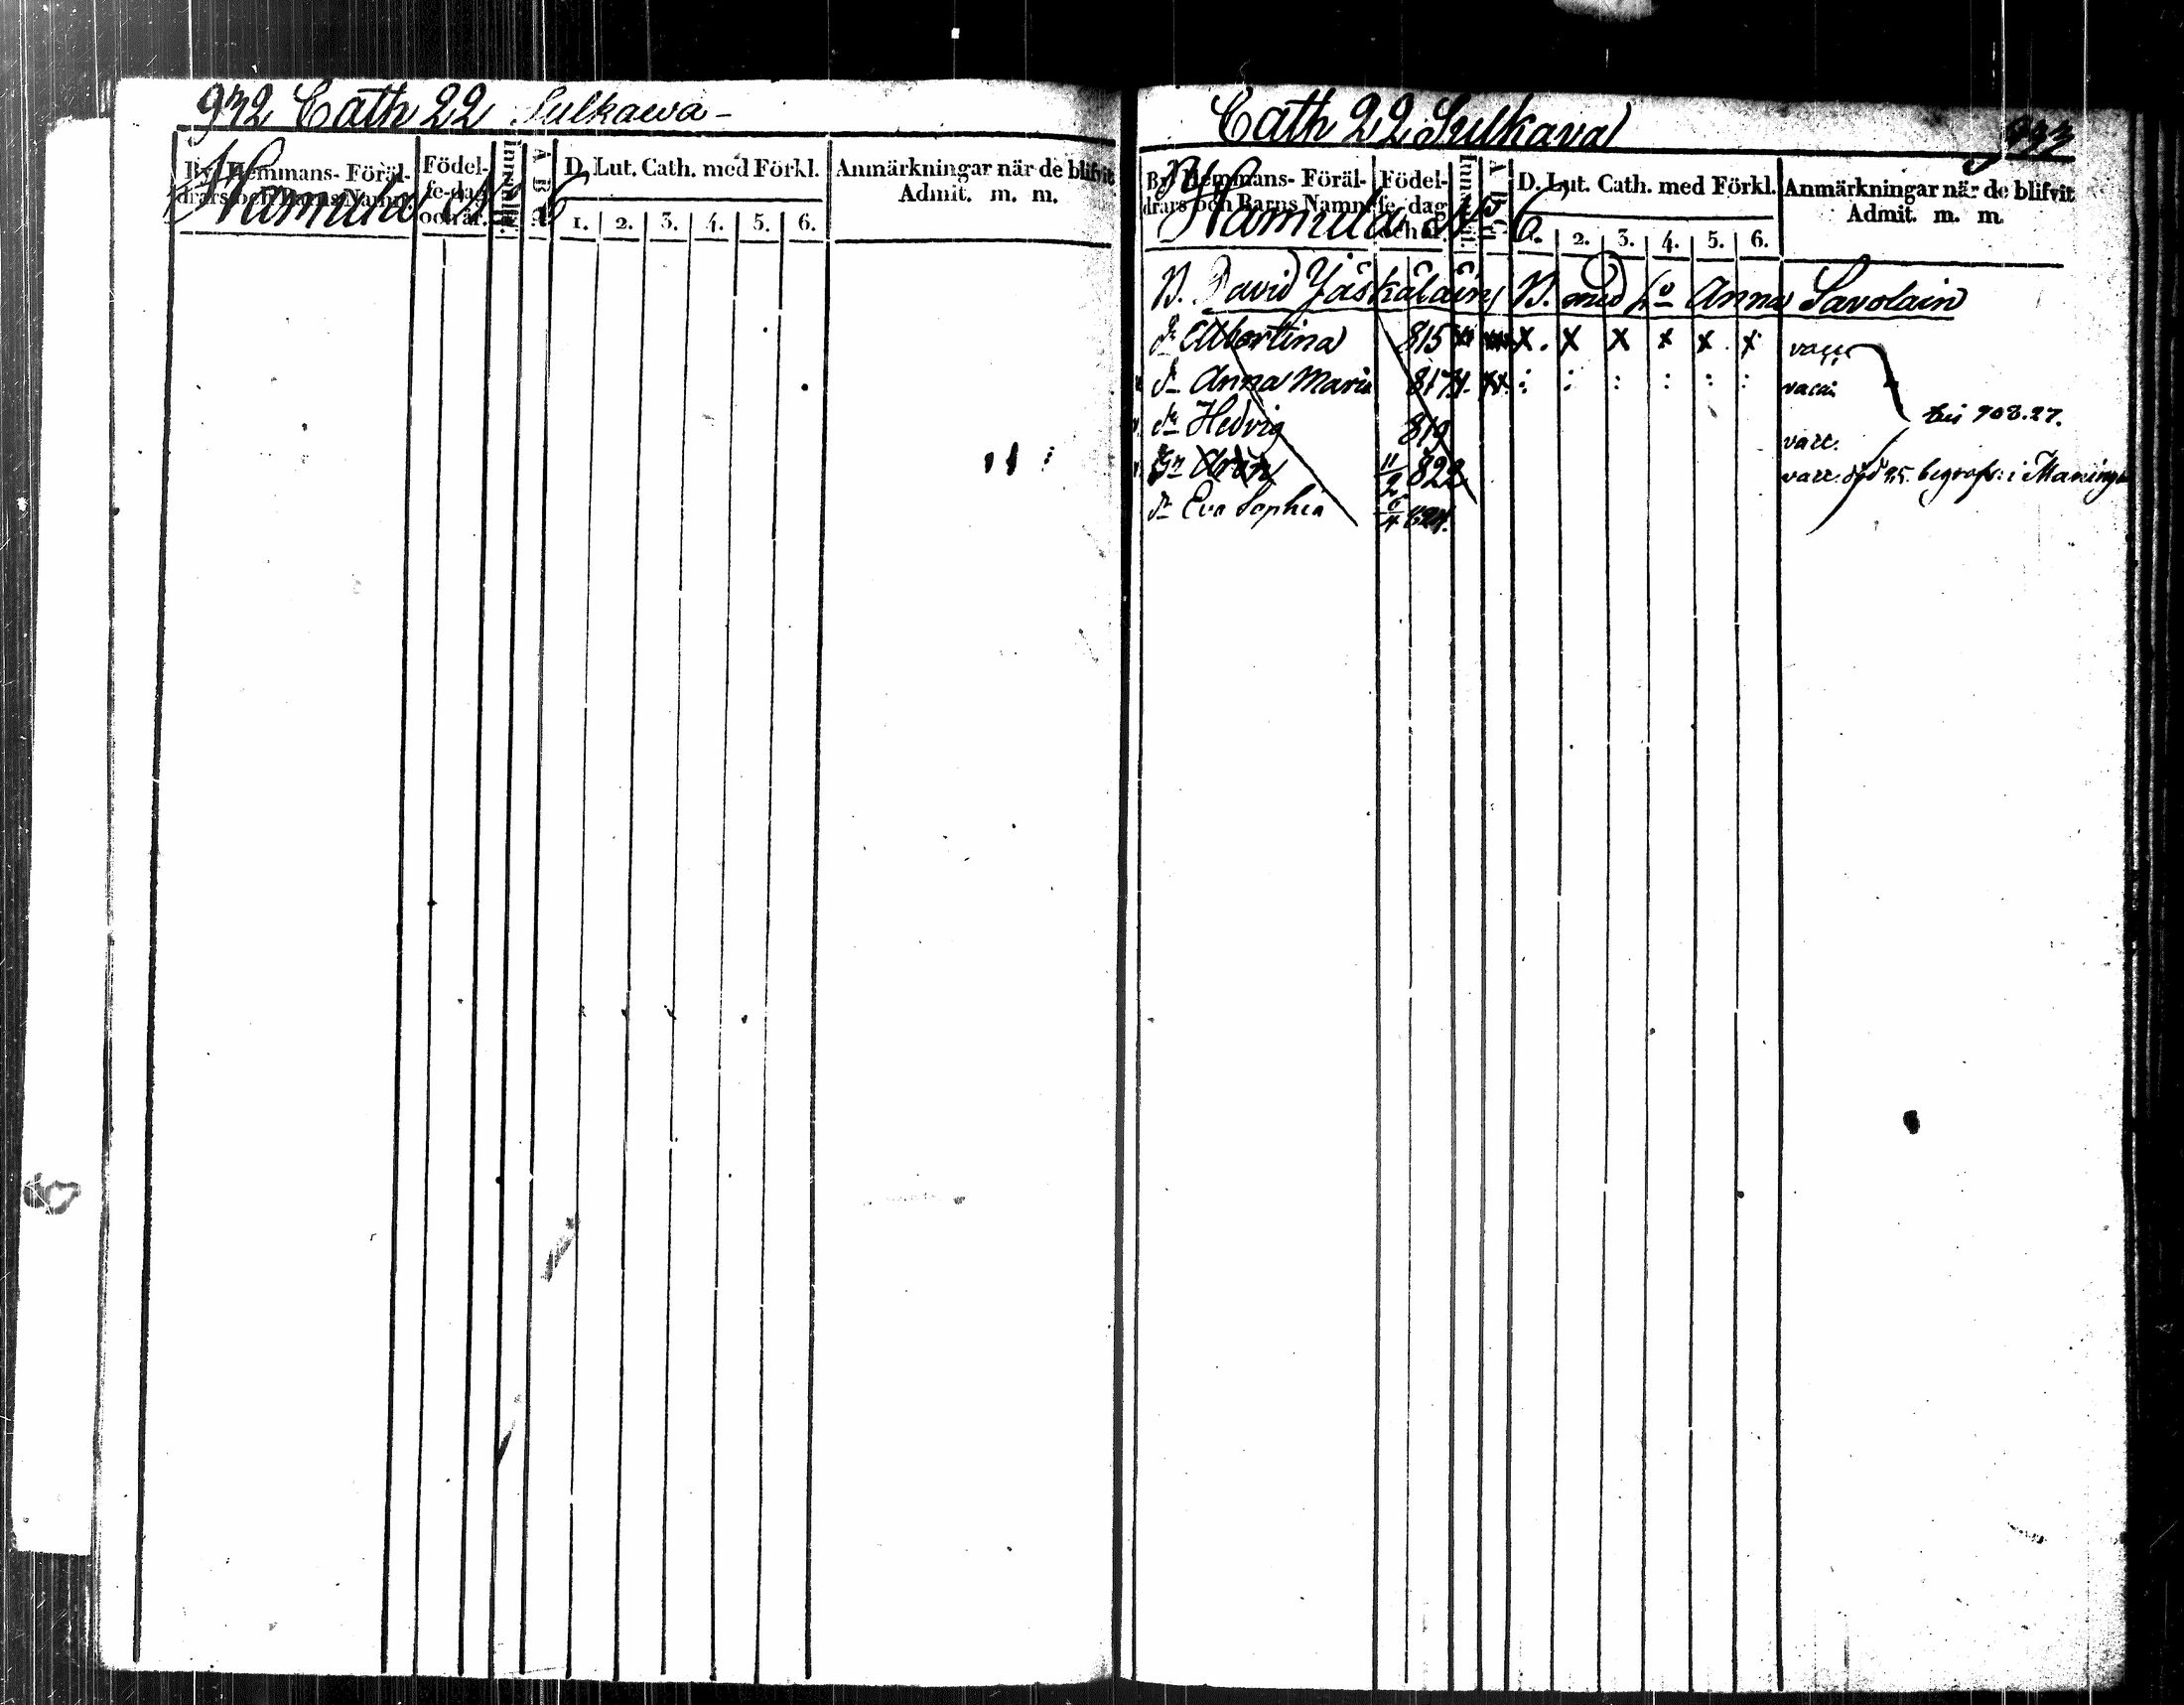 932 Cath 22 Sulkawa -
By, Hemmans- Föräl-
drars och Barns Namn.
Födel-
se-dag
och år.
Innanläsn.
A B C
D. Lut. Cath. med Förkl.
1. 2. 3. 4. 5. 6.
Anmärkningar när de blifvit
Admit. m. m.
Cath 22 Sulkava 933
By, Hemmans- Föräl-
drars och Barns Namn.
Födel-
se-dag
och år.
A B C
D. Lut. Cath. med Förkl.
1. 2. 3. 4. 5. 6.
Anmärkningar när de blifvit
Admit. m. m.
B. David Jäskäläin B. med h:o Anna Savolain
Dr Albertina 815 x x x x x x vacc.
Dr Anna Maria 817 vacc.
Dr Hedvig 819 vacc. 908.27.
Sn Aron 11/2 822 vacc. död 25. begrafv: i Maninga
Dr Eva Sophia 6/4 824.